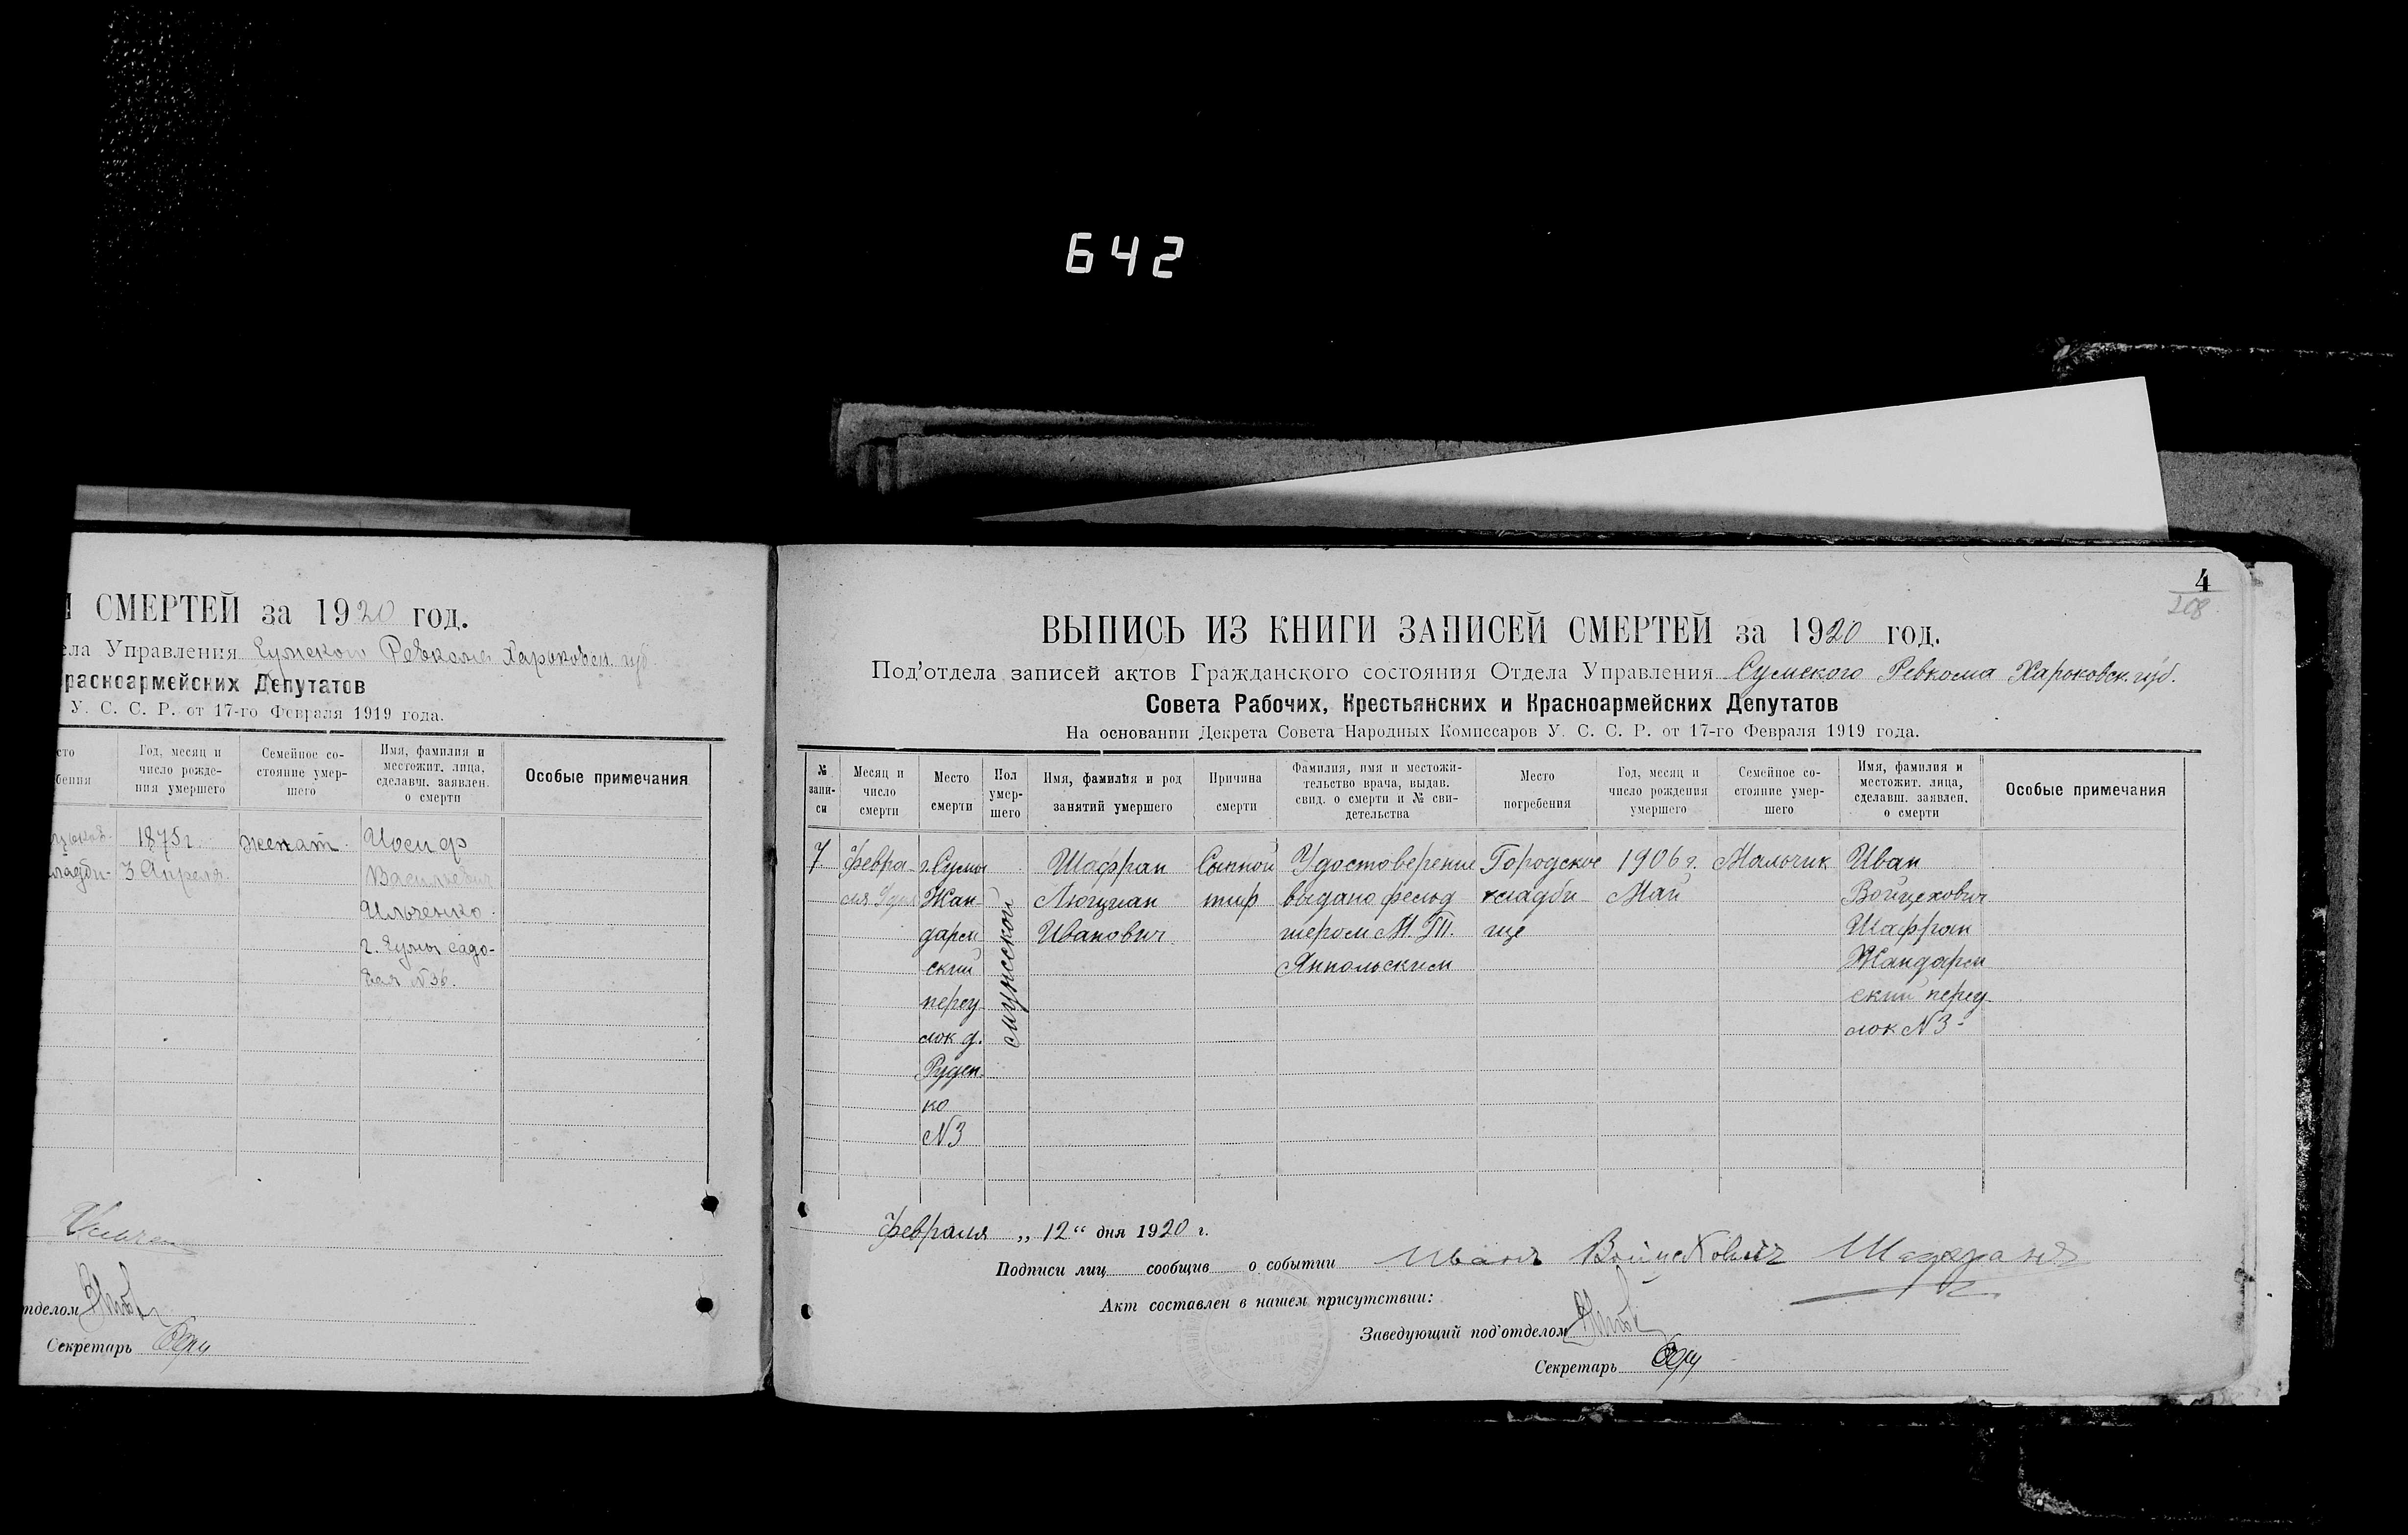 642
СМЕРТЕЙ за 1920 год.
ела Управления Сумского Ревкома Харьковск. губ.
расноармейских Депутатов
У. С. С. Р. от 17-го Февраля 1919 года.
сто
бения
Год, месяц и
число рожде-
ния умершего
Семейное со-
стояние умер-
шего
Имя, фамилия и
местожит. лица,
сделавш. заявлен.
о смерти
Особые примечания
1875 г.
3 Апреля
женат
Иосиф
Васильевич
Ильченко
г. Сумы садо-
вая N36.
тделом
Секретарь
4
208
ВЫПИСЬ ИЗ КНИГИ ЗАПИСЕЙ СМЕРТЕЙ за 1920 год.
Под'отдела записей актов Гражданского состояния Отдела Управления Сумского Ревкома Харьковск. губ.
Совета Рабочих, Крестьянских и Красноармейских Депутатов
На основании Декрета Совета Народных Комиссаров У. С. С. Р. от 17-го Февраля 1919 года.
№
запи-
си
Месяц и
число
смерти
Место
смерти
Пол
умер-
шего
Имя, фамилия и род
занятий умершего
Причина
смерти
Фамилия, имя и местожи-
тельство врача, выдав.
свид. о смерти и № сви-
детельства
Место
погребения
Год, месяц и
число рождения
умершего
Семейное со-
стояние умер-
шего
Имя, фамилия и
местожит. лица,
сделавш. заявлен.
о смерти
Особые примечания
7
Февра
ля
г. Сумы
Жан-
дарм
ский
переу
лок д.
Руден-
ко
N3
мужской
Шафран
Люциан
Иванович
Сыпной
тиф
Удостоверение
выдано фельд
шером М. П.
Янпольским
Городское
кладби
ще
1906 г.
Май
Мальчик
Иван
Войцехович
Шафран
Жандарм
ский переу-
лок N3
Февраля „12“ дня 1920 г.
Подписи лиц сообщив о событии Иванъ Войцеховичъ Шафранъ
Акт составлен в нашем присутствии:
Заведующий под'отделом
Секретарь